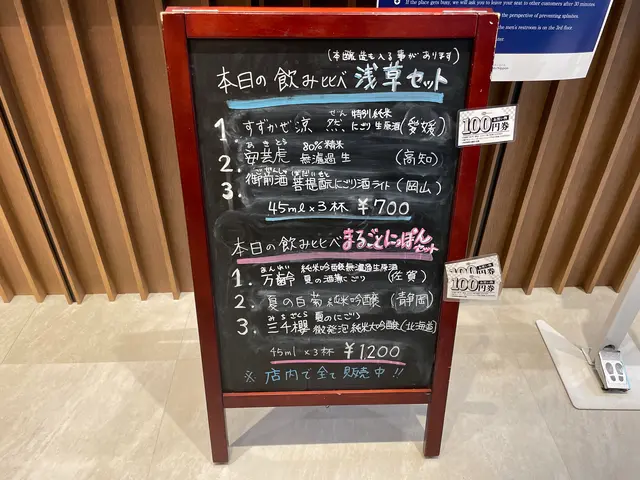 If the place gets busy, we will ask you to leave your seat to other customers after 30 minutes
the perspective of preventing splashes
men's restroom is on the 3rd floor
(本醸造も入る事があります)
本日の飲み比べ 浅草セット
ぜん 特別純米
1. すずかぜ涼 然、にごり生原酒 (愛媛)
あきとら 80%精米
2. 安芸虎 無濾過生 (高知)
ごぜんしゅ ぼだいもと
3. 御前酒 菩提酛にごり酒ライト (岡山)
45ml×3杯 ¥700
本日の飲み比べ まるごとにっぽんセット
まんれい 純米吟醸無濾過生原酒
1. 万齢 夏の酒策にごり (佐賀)
2. 夏の白菊 純米吟醸 (静岡)
みちざくら 夏のにごり
3. 三千櫻 微発泡純米大吟醸 (北海道)
45ml×3杯 ¥1,200
※店内で全て販売中!!
100円券
100円券